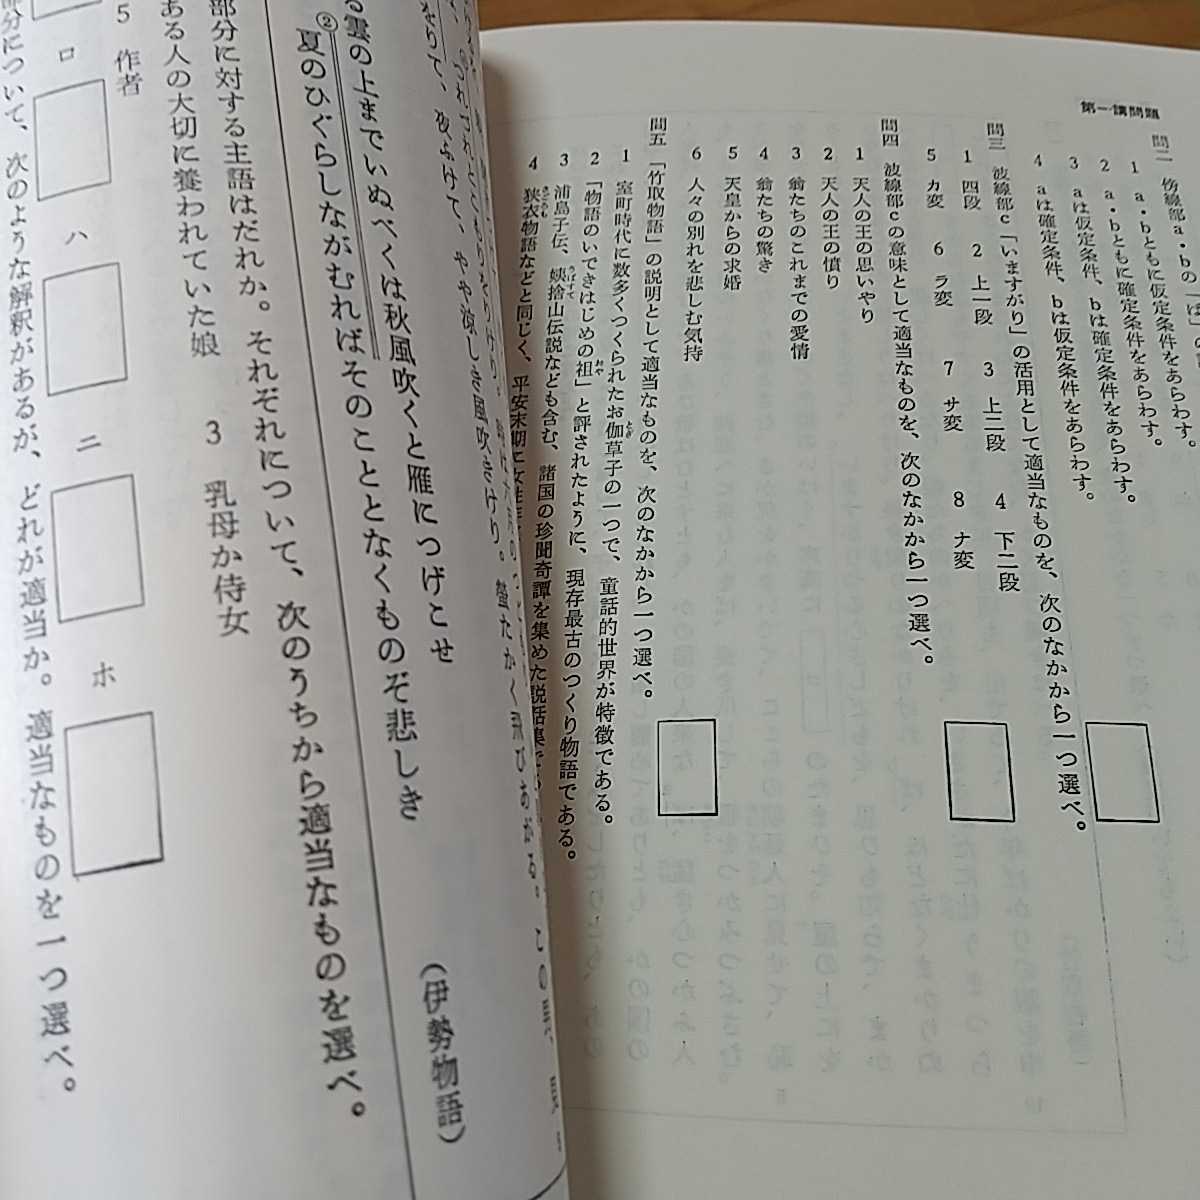 第一講問題
問二 傍線部a・bの「ば」の
1 a・bともに仮定条件をあらわす。
2 a・bともに確定条件をあらわす。
3 aは仮定条件、bは確定条件をあらわす。
4 aは確定条件、bは仮定条件をあらわす。
問三 波線部c「いますがり」の活用として適当なものを、次のなかから一つ選べ。
1 四段 2 上一段 3 上二段 4 下二段
5 カ変 6 ラ変 7 サ変 8 ナ変
問四 波線部cの意味として適当なものを、次のなかから一つ選べ。
1 天人の王の思いやり
2 天人の王の憤り
3 翁たちのこれまでの愛情
4 翁たちの驚き
5 天皇からの求婚
6 人々の別れを悲しむ気持
問五 「竹取物語」の説明として適当なものを、次のなかから一つ選べ。
1 室町時代に数多くつくられたお伽草子の一つで、童話的世界が特徴である。
2 「物語のいできはじめの祖」と評されたように、現存最古のつくり物語である。
3 浦島子伝、姨捨山伝説なども含む、諸国の珍聞奇譚を集めた説話集で
4 狭衣物語などと同じく、平安末期に
つれづれとこもりをりけり。
て、夜ふけて、やや涼しき風吹きけり。螢たかく飛びあがる。この
る雲の上までいぬべくは秋風吹くと雁につげこせ
②夏のひぐらしながむればそのこととなくものぞ悲しき
(伊勢物語)
部分に対する主語はだれか。それぞれについて、次のうちから適当なものを選べ。
ある人の大切に養われていた娘 3 乳母か侍女
5 作者
ロ ハ ニ ホ
部分について、次のような解釈があるが、どれが適当か。適当なものを一つ選べ。